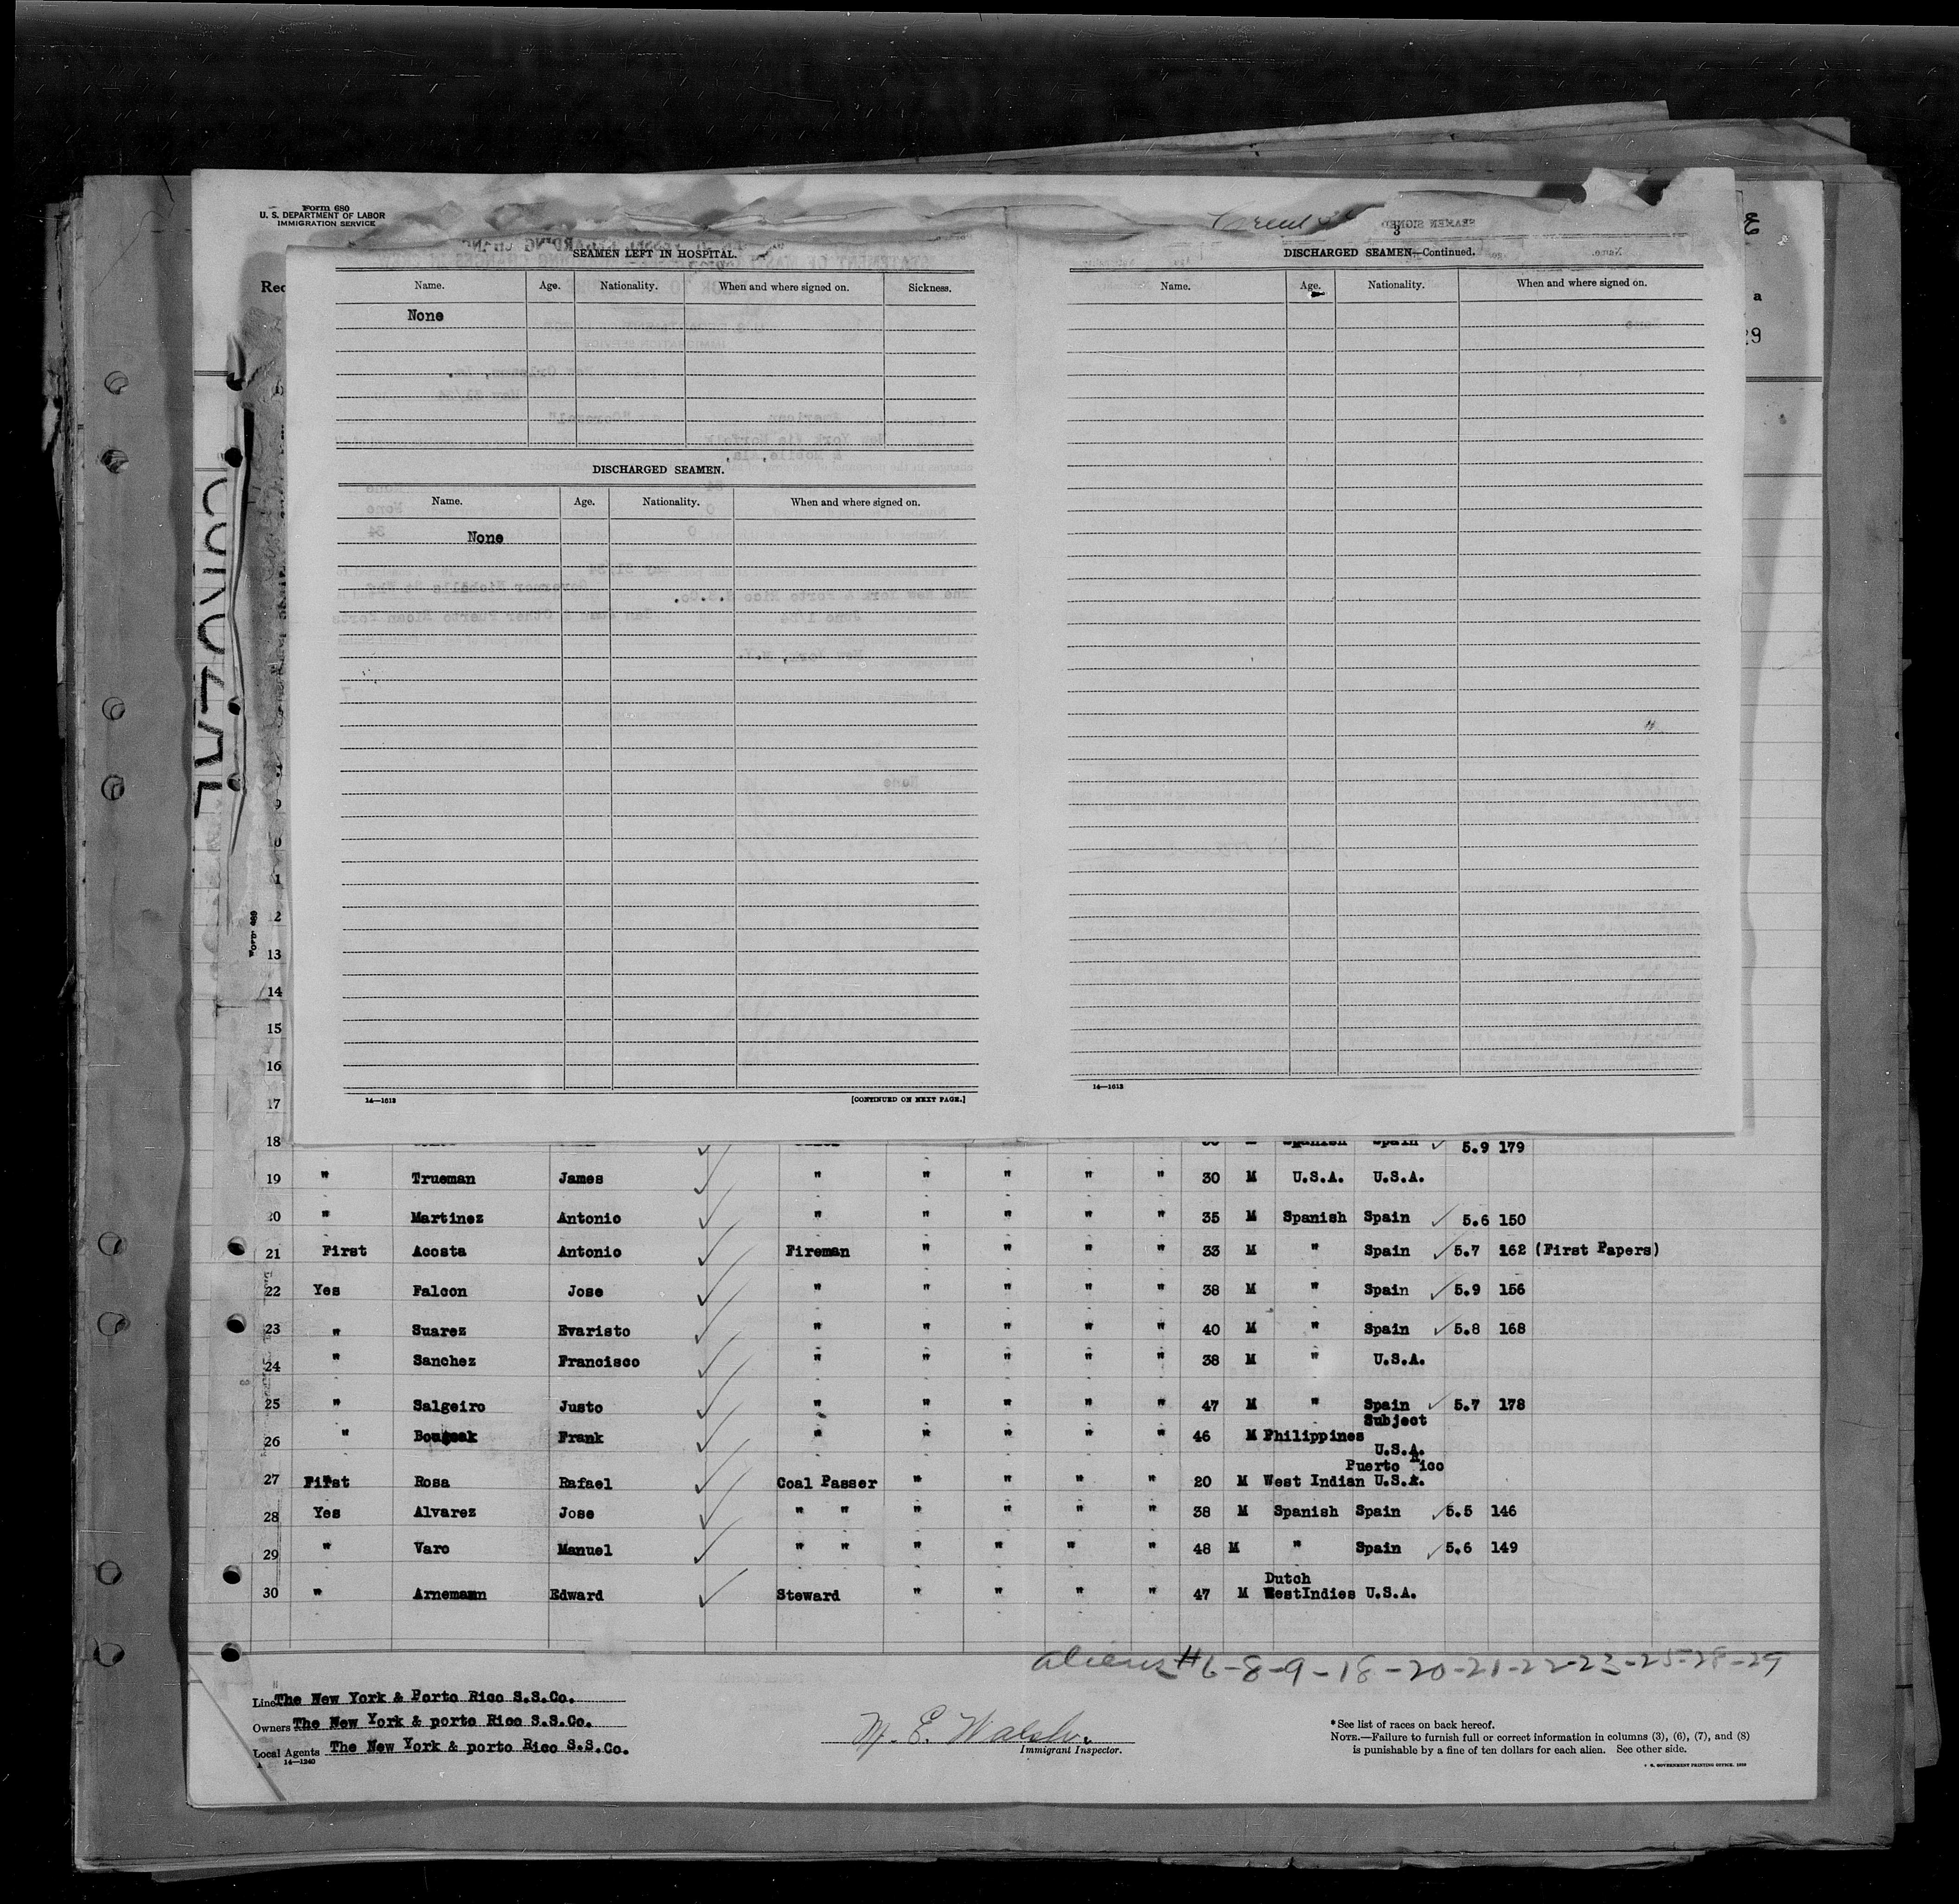 Form 680
U. S. DEPARTMENT OF LABOR
IMMIGRATION SERVICE
COROZAL
SEAMEN LEFT IN HOSPITAL.
Name. Age. Nationality. When and where signed on. Sickness.
None
DISCHARGED SEAMEN.
Name. Age. Nationality. When and where signed on.
None
14—1613 [CONTINUED ON NEXT PAGE.]
3
DISCHARGED SEAMEN—Continued.
Name. Age. Nationality. When and where signed on.
14—1613
12
13
14
15
16
17
18 Spanish Spain ✓ 5.9 179
19 " Trueman James ✓ " " " " " 30 M U.S.A. U.S.A.
20 " Martinez Antonio ✓ " " " " " 35 M Spanish Spain ✓ 5.6 150
21 First Acosta Antonio ✓ Fireman " " " " 33 M " Spain ✓ 5.7 162 (First Papers)
22 Yes Falcon Jose ✓ " " " " " 38 M " Spain ✓ 5.9 156
23 " Suarez Evaristo ✓ " " " " " 40 M " Spain ✓ 5.8 168
24 " Sanchez Francisco ✓ " " " " " 38 M " U.S.A.
25 " Salgeiro Justo ✓ " " " " " 47 M " Spain ✓ 5.7 178
26 " Frank ✓ " " " " " 46 M Philippines Subject U.S.A.
27 First Rosa Rafael ✓ Coal Passer " " " " 20 M West Indian Puerto Rico U.S.A.
28 Yes Alvarez Jose ✓ " " " " " " 38 M Spanish Spain ✓ 5.5 146
29 " Varo Manuel ✓ " " " " " " 48 M " Spain ✓ 5.6 149
30 " Arnemann Edward ✓ Steward " " " " 47 M Dutch WestIndies U.S.A.
aliens #6-8-9-18-20-21-22-23-25-28-29
Line The New York & Porto Rico S.S.Co.
Owners The New York & porto Rico S.S.Co.
Local Agents The New York & porto Rico S.S.Co.
14—1240
M. E. Walsh.
Immigrant Inspector.
*See list of races on back hereof.
NOTE.—Failure to furnish full or correct information in columns (3), (6), (7), and (8)
is punishable by a fine of ten dollars for each alien. See other side.
U. S. GOVERNMENT PRINTING OFFICE